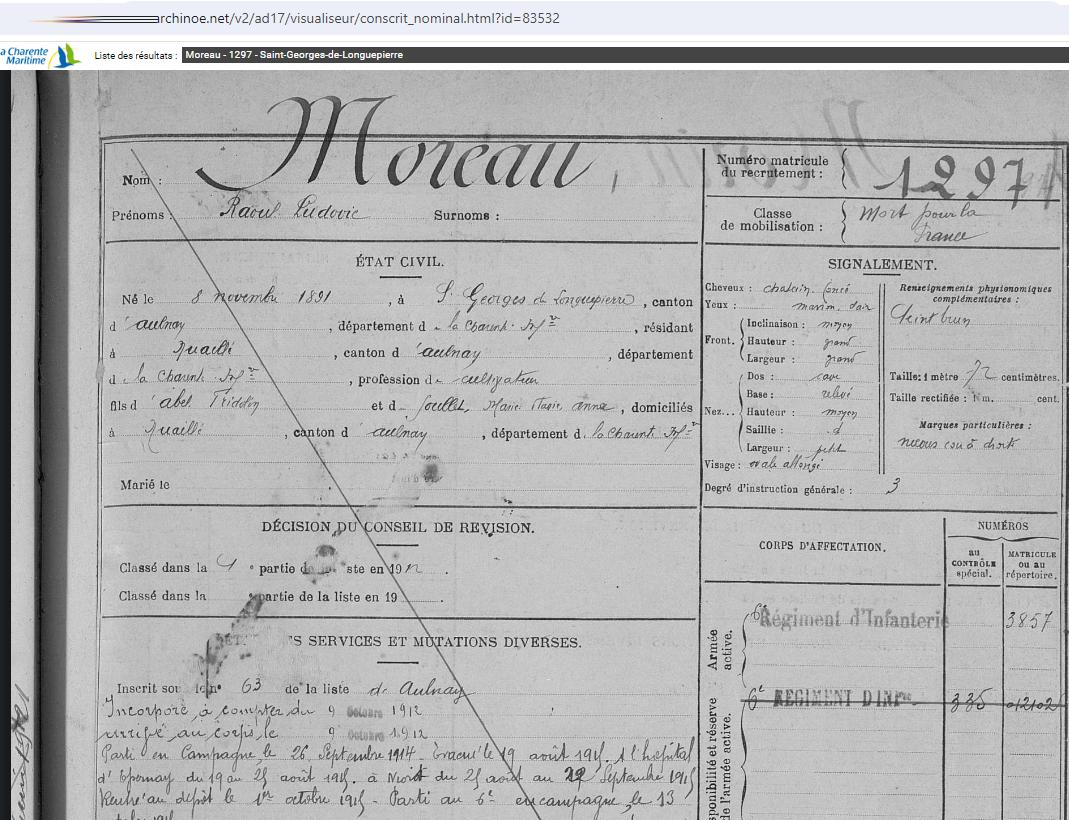 archinoe.net/v2/ad17/visualiseur/conscrit_nominal.html?id=83532
La Charente Maritime
Liste des résultats : Moreau - 1297 - Saint-Georges-de-Longuepierre
Nom : Moreau,
Prénoms : Raoul Ludovic Surnoms :
Numéro matricule du recrutement : 1297
Classe de mobilisation : Mort pour la France
ÉTAT CIVIL.
Né le 8 novembre 1891, à St Georges de Longuepierre, canton
d'aulnay, département de la Charente Infre, résidant
à , canton d'aulnay, département
de la Charente Infre, profession de cultivateur
fils d'abel et de , Marie anne, domiciliés
à , canton d'aulnay, département de la Charente Infre
Marié le
SIGNALEMENT.
Cheveux : chatain foncé
Yeux : clair
Front. Inclinaison : moyen
Hauteur : grand
Largeur : grand
Nez... Dos : cave
Base : relevé
Hauteur : moyen
Saillie : d
Largeur : petit
Visage : ovale allongé
Degré d'instruction générale : 3
Renseignements physionomiques complémentaires :
teint brun
Taille : 1 mètre 72 centimètres.
Taille rectifiée : 1 m. cent.
Marques particulières :
cou à droite
DÉCISION DU CONSEIL DE REVISION.
Classé dans la partie de la liste en 1912.
Classé dans la partie de la liste en 19 .
CORPS D'AFFECTATION.
NUMÉROS
au CONTRÔLE spécial.
MATRICULE ou au répertoire.
Armée active.
6e Régiment d'Infanterie 3857
Disponibilité et réserve de l'armée active.
6e REGIMENT D'INFrie 335 01202
DÉTAIL DES SERVICES ET MUTATIONS DIVERSES.
Inscrit sous le no 63 de la liste de Aulnay
Incorporé à compter du 9 Octobre 1912
arrivé au corps le 9 Octobre 1912
Parti en Campagne le 26 Septembre 1914. Evacué le 19 août 1915. A l'hopital
d'Epernay du 19 au 25 août 1915. à Niort du 25 août au 29 Septembre 1915
Rentré au dépôt le 1er octobre 1915 - Parti au 6e en campagne le 13